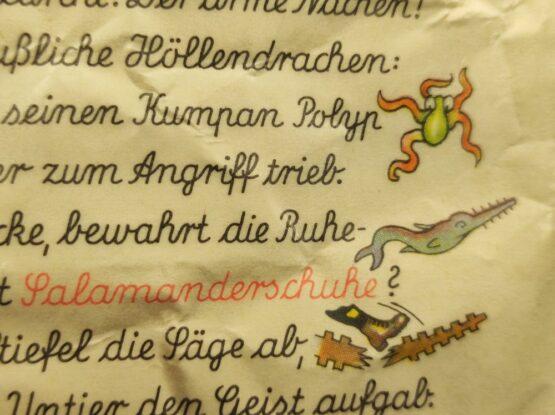 Der arme Nachen!
ußliche Höllendrachen:
seinen Kumpan Polyp
er zum Angriff trieb.
cke, bewahrt die Ruhe-
t Salamanderschuhe?
Stiefel die Säge ab,
Untier den Geist aufgab.